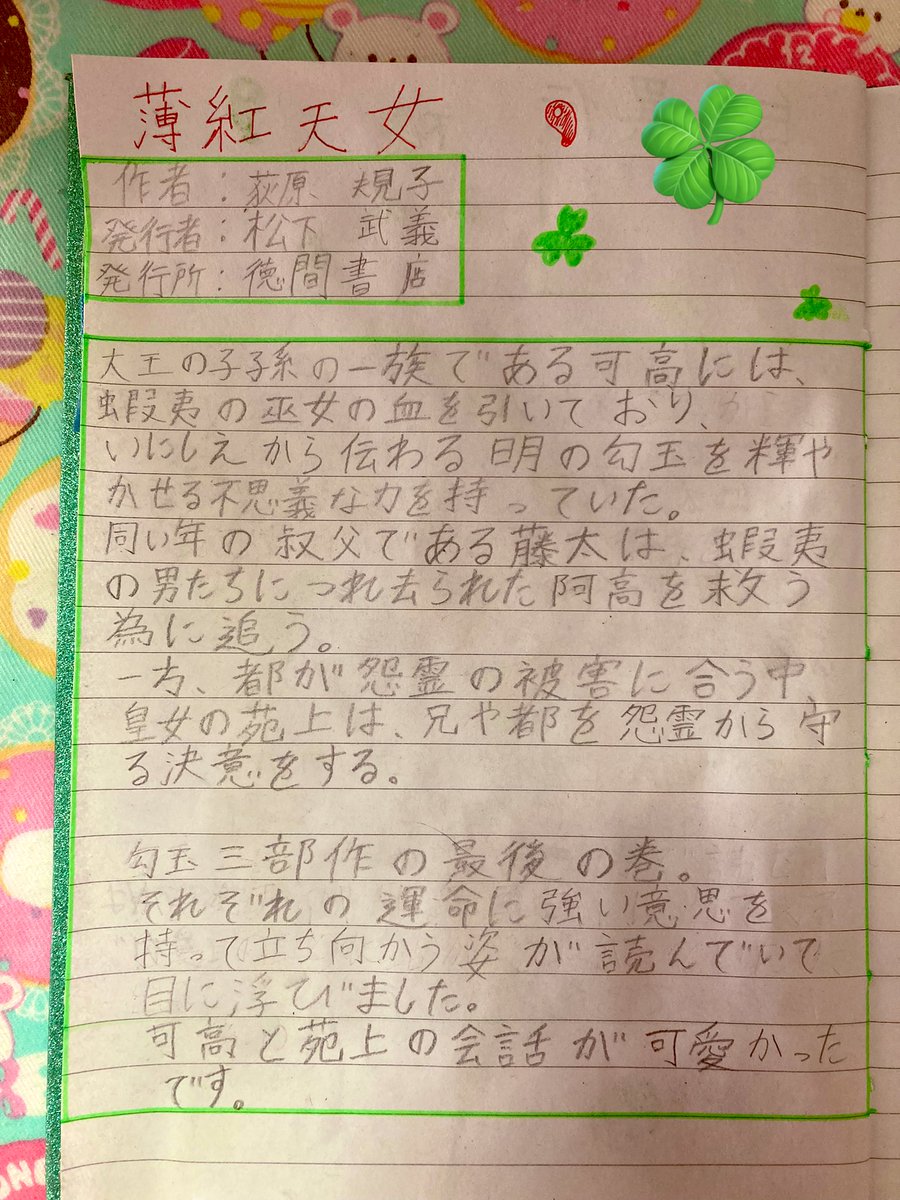 薄紅天女
作者：荻原 規子
発行者：松下 武義
発行所：徳間書店
大王の子子孫の一族である可高には、
蝦夷の巫女の血を引いており、
いにしえから伝わる明の勾玉を輝や
かせる不思義な力を持っていた。
同い年の叔父である藤太は、蝦夷
の男たちにつれ去られた阿高を救う
為に追う。
一方、都が怨霊の被害に合う中、
皇女の苑上は、兄や都を怨霊から守
る決意をする。
勾玉三部作の最後の巻。
それぞれの運命に強い意思を
持って立ち向かう姿が読んでいて
目に浮びました。
可高と苑上の会話が可愛かった
です。